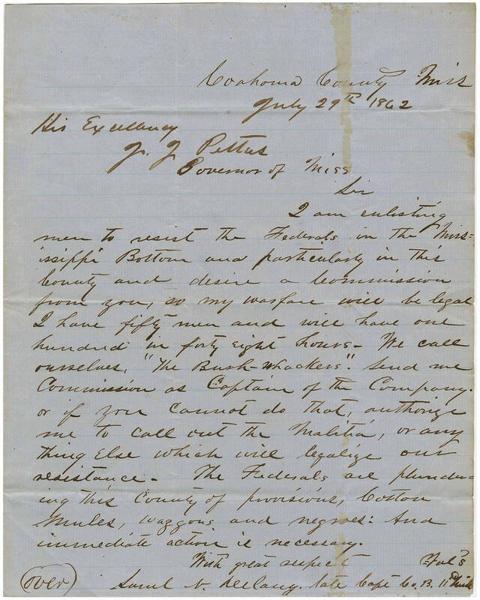 Coahoma County Miss
July 29th 1862
His Excellency
J. J. Pettus
Governor of Miss
Sir
I am enlisting
men to resist the Federals in the Miss-
issippi Bottom and particularly in this
County and desire a Commission
from you, so my warfare will be legal
I have fifty men and will have one
hundred in forty eight hours - We call
ourselves, "The Bush-whackers". Send me
Commission as Captain of the Company.
or if you cannot do that, authorize
me to call out the Malitia, or any
thing Else which will legalize our
resistance - The Federals are plunder-
ing this County of provisions, Cotton
Mules, waggons and negroes: And
immediate action is necessary.
With great respect
Saml N. Delaney late Capt Co. B. 11th
(over)